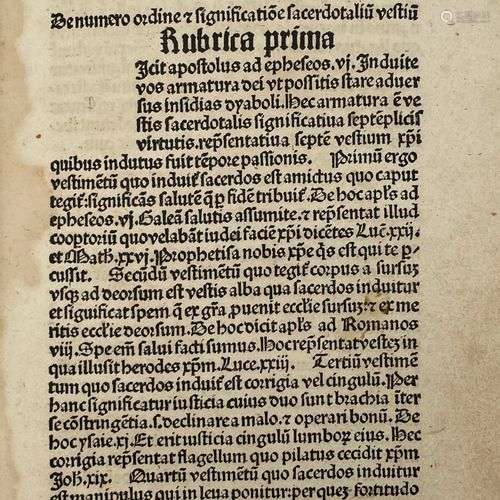 De numero ordine ⁊ significatiōe sacerdotaliū vestiū
Rubrica prima
Icit apostolus ad epheseos. vj. Induite
vos armatura dei vt possitis stare aduer
sus insidias dyaboli. Hec armatura ē ve
stis sacerdotalis significatiua septēplicis
virtutis. rep̄sentatiua septē vestium xp̄i
quibus indutus fuit tēpore passionis. Primū ergo
vestimētū quo induit̃ sacerdos est amictus quo caput
tegit̃: significās salutē q̄ ꝑ fidē tribuit̃. De hoc ap̄ls ad
epheseos. vj. Galeā salutis assumite. ⁊ rep̄sentat illud
cooptoriū quo velabāt iudei faciē xp̄i dicētes Luc. xxij.
et Math. xxvj. Prophetisa nobis xp̄e q̄s est qui te ꝑ-
cussit. Secūdū vestimētū quo tegit̃ corpus a sursuz
vsqꝫ ad deorsum est vestis alba qua sacerdos induitur
et siguificat spem q̄ ex gr̄a ꝓuenit ecclīe sursuz: ⁊ ex me
ritis ecclīe deorsum. De hoc dicit ap̄ls ad Romanos
viij. Spe em̄ salui facti sumus. Hoc rep̄sentat vestez in
qua illusit herodes xp̄m. Luce. xxiij. Tertiū vestimē
tum quo sacerdos induit̃ est corrigia vel cingulū. Per
hanc significatur iusticia cuius duo sunt brachia īter
se cōstringētia. s. declinare a malo. ⁊ operari bonū. De
hoc ysaie. xj. Et erit iusticia cingulū lumboꝝ eius. Hec
corrigia rep̄sentat flagellum quo pilatus cecidit xp̄m
Joh̄. xix. Quartū vestimētū quo sacerdos induitur
est manipulus qui in leua ponitur: per quez fortitudo